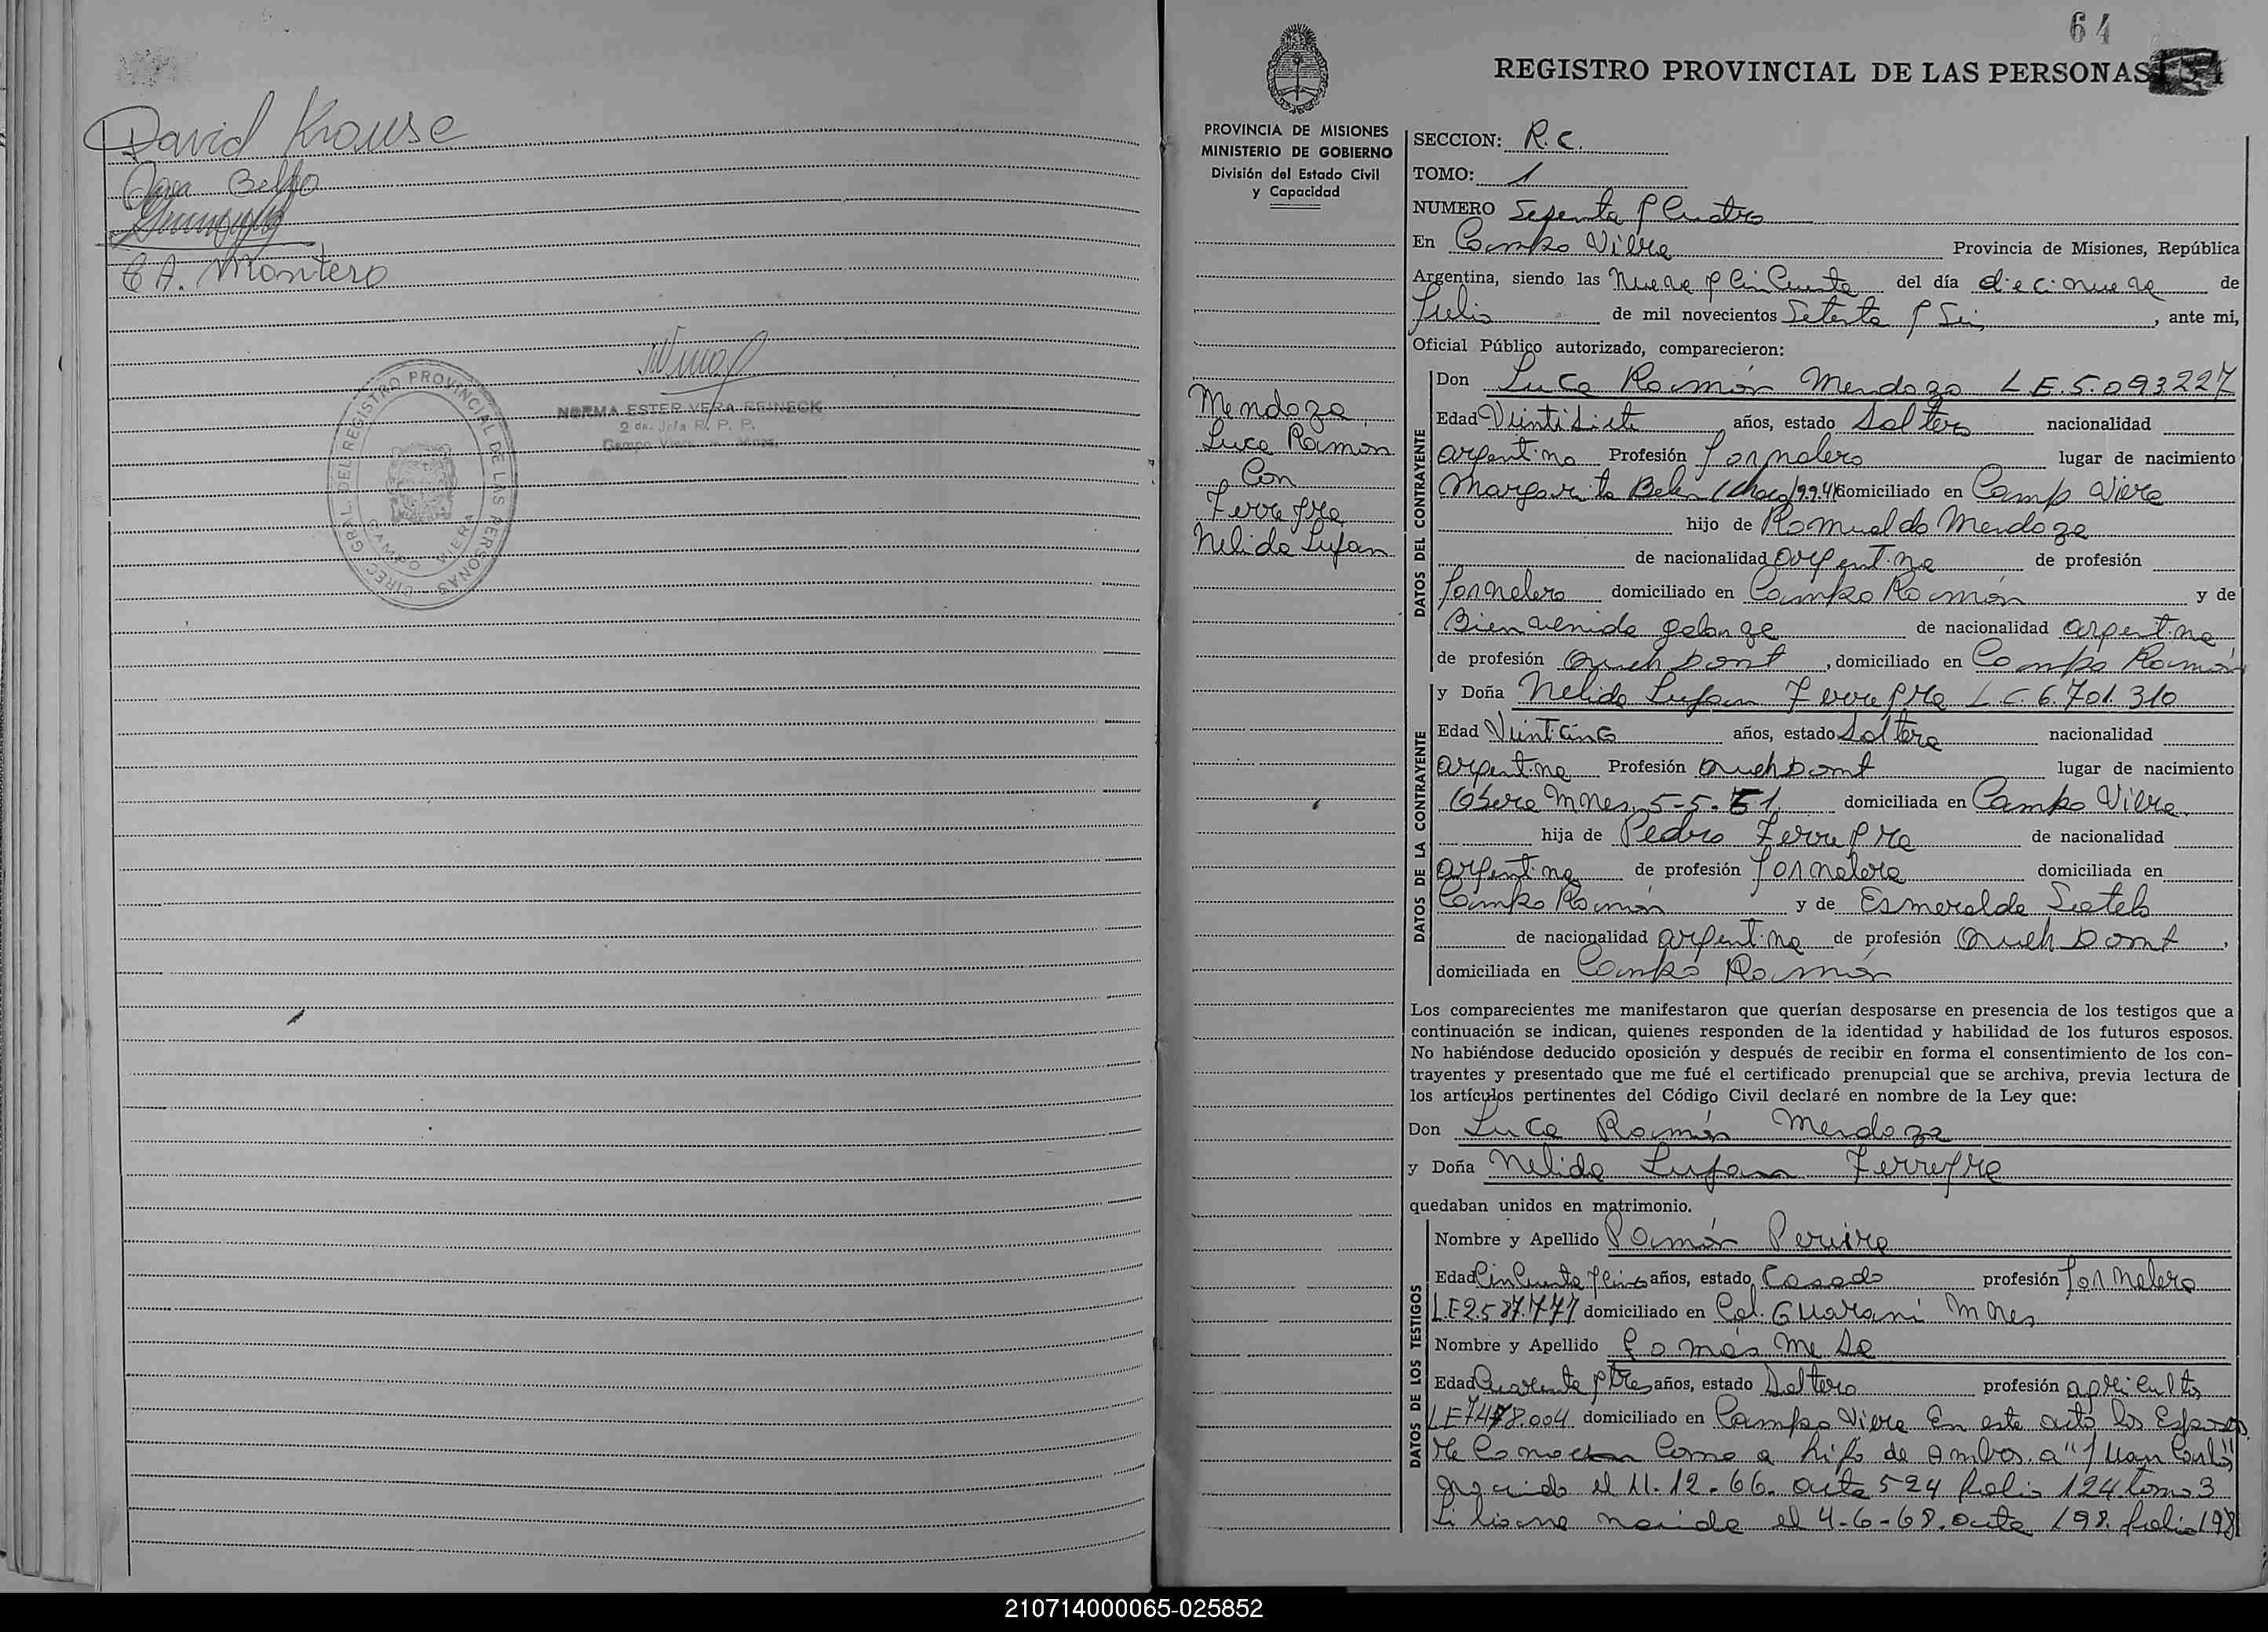 David Krause
Rosa
C A. Montero
DIREC. GRAL. DEL REGISTRO PROVINCIAL DE LAS PERSONAS
CAMPO VIERA
NORMA ESTER VERA REINECK
2 da. Jefa R. P. P.
Campo Viera - Mnes.
64
REGISTRO PROVINCIAL DE LAS PERSONAS
PROVINCIA DE MISIONES
MINISTERIO DE GOBIERNO
División del Estado Civil
y Capacidad
Mendoza
Luca Ramón
Con
Ferreyra
Nelida Lujan
SECCION: R.C.
TOMO: 1
NUMERO Sesenta y Cuatro
En Campo Viera Provincia de Misiones, República
Argentina, siendo las Nueve y Cincuenta del día diecinueve de
Julio de mil novecientos Setenta y Seis, ante mi,
Oficial Público autorizado, comparecieron:
DATOS DEL CONTRAYENTE
Don Luca Ramón Mendoza L E. 5.093227
Edad Veintisiete años, estado Soltero nacionalidad
argentina Profesión Jornalero lugar de nacimiento
Margarita Belen (Chaco) domiciliado en Campo Viera
hijo de Romualdo Mendoza
de nacionalidad argentina de profesión
Jornalero domiciliado en Campo Ramón y de
Bienvenida galarza de nacionalidad argentina
de profesión Queh Domt, domiciliado en Campo Ramón
DATOS DE LA CONTRAYENTE
y Doña Nelida Lujan Ferreyra L C. 6.701.310
Edad Veinticinco años, estado Soltera nacionalidad
argentina Profesión Queh Domt lugar de nacimiento
Obera Mnes. 5-5-51. domiciliada en Campo Viera
hija de Pedro Ferreyra de nacionalidad
argentina de profesión Jornalera domiciliada en
Campo Ramón y de Esmeralda Sotelo
de nacionalidad argentina de profesión Queh Domt,
domiciliada en Campo Ramón
Los comparecientes me manifestaron que querían desposarse en presencia de los testigos que a
continuación se indican, quienes responden de la identidad y habilidad de los futuros esposos.
No habiéndose deducido oposición y después de recibir en forma el consentimiento de los con-
trayentes y presentado que me fué el certificado prenupcial que se archiva, previa lectura de
los artículos pertinentes del Código Civil declaré en nombre de la Ley que:
Don Luca Ramón Mendoza
y Doña Nelida Lujan Ferreyra
quedaban unidos en matrimonio.
DATOS DE LOS TESTIGOS
Nombre y Apellido Ramón Pereira
Edad Cincuenta y Cinco años, estado Casado profesión Jornalero
L.E 2.587.777 domiciliado en Col. Guarani Mnes
Nombre y Apellido Tomás Meza
Edad Cuarenta y tres años, estado Soltero profesión agricultor
L E domiciliado en Campo Viera En este acto los Esposos
reconocen Como a hijo de Ambos. a "Juan Carlos"
nacido el 11-12-66. acta 524 folio 124. tomo 3
Liliana nacida el 4-6-68. acta 198. folio 198
210714000065-025852